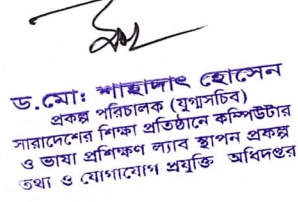 ড.মো: শাহাদাৎ হোসেন
প্রকল্প পরিচালক (যুগ্মসচিব)
সারাদেশের শিক্ষা প্রতিষ্ঠানে কম্পিউটার
ও ভাষা প্রশিক্ষণ ল্যাব স্থাপন প্রকল্প
তথ্য ও যোগাযোগ প্রযুক্তি অধিদপ্তর